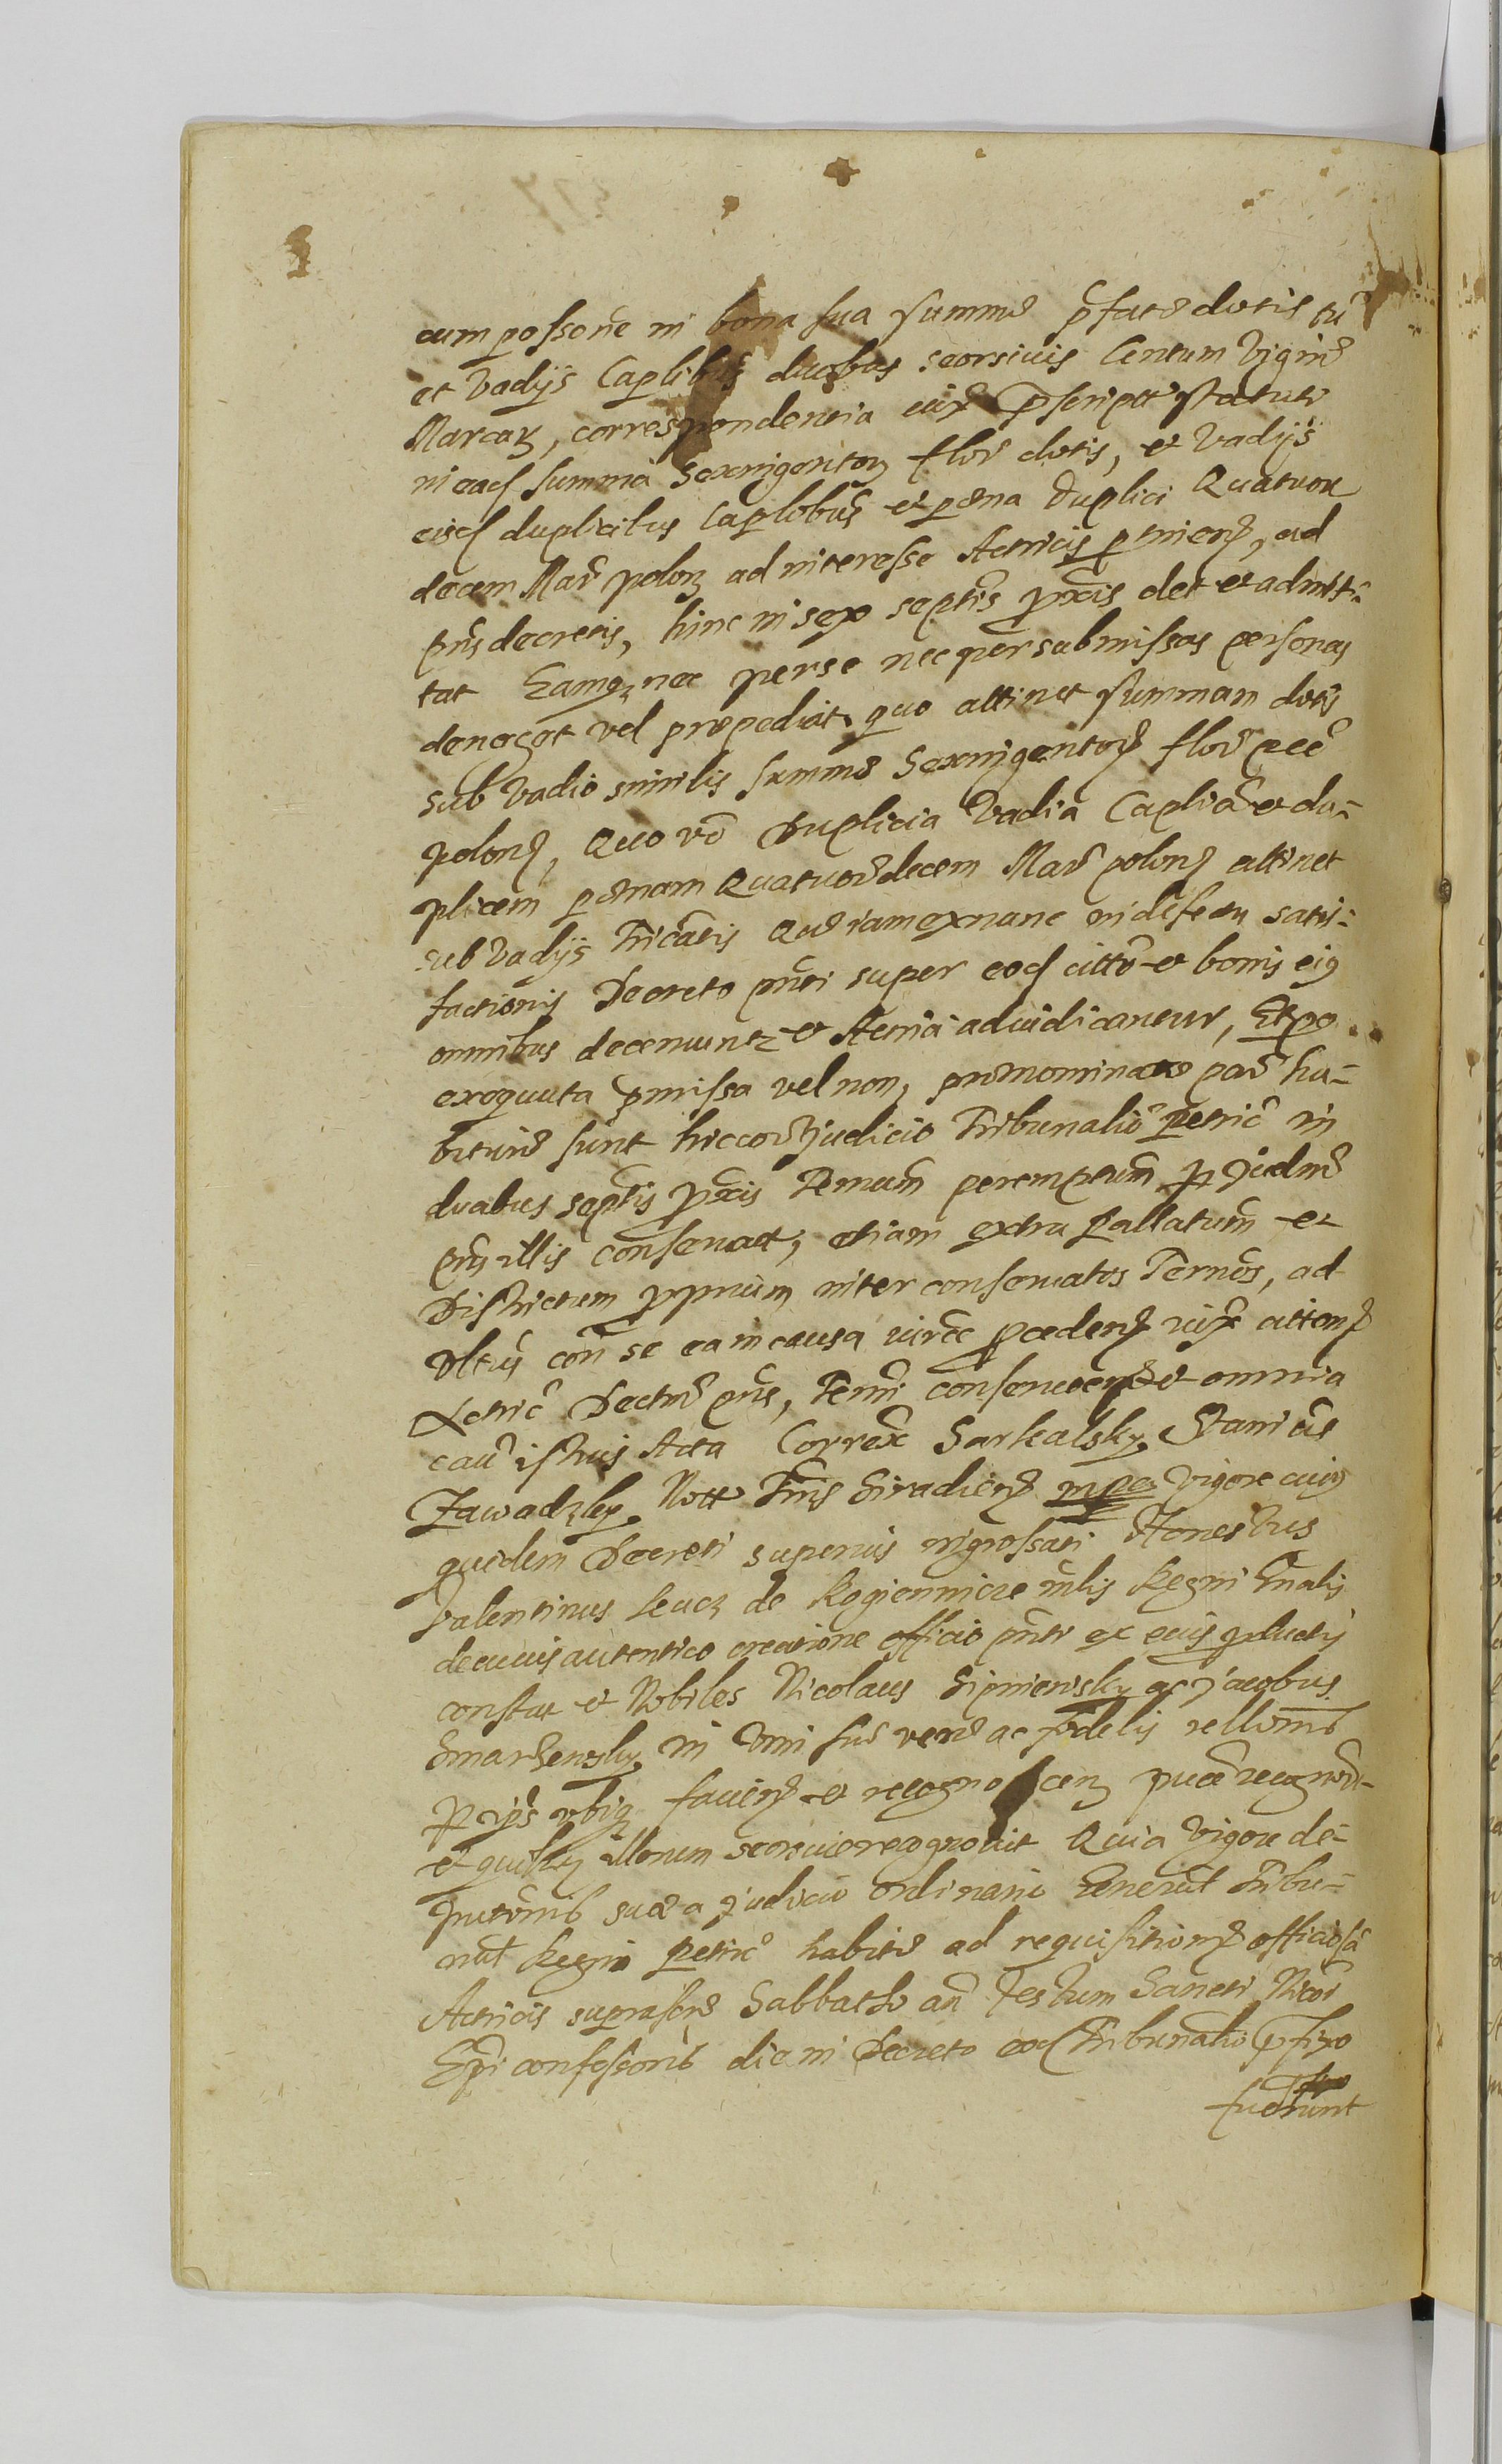 eam possone in bona sua summæ p̄fatæ dotis tū
et Vadijs Caplibus duobus seorsivis Centum Viginti
Marcaꝝ, correspondentia iuxͣ p̄script statuti
in ead summa Sexingentoꝝ flor dotis, et Vadijs
eisd duplicibus Caplibus et pæna duplici Quatuor
decem Mar poloꝝ ad interesse Actricis ptinen, ad
pn̄s decretis, hinc in sex septīs pxīs det et admit-
tat Eamqꝫ nec per se nec per submissas personas
deneget vel præpediat, quo attinet summam dotis
sub Vadio similis summæ Sexingentoꝝ flor pec
polon, Quo vō Duplicia Vadia Caplia et du-
plicem pænam Quatuordecem Mar polon attinet
sub Vadijs Tricatis Quæ iam ex nunc in defectu satis-
factionis Decreto pn̄ti super eod citto et bonis eiꝰ
omnibus decernuntᷣ et Actrici adiudicantur, Et pꝰ
exequuta p̄missa vel non, prænominatæ par ha-
bituræ sunt hic cor Judicio Tribunali Petric in
duabus septīs pxīs Termum peremptum ꝑ Judm
pn̄s illis conservatt, etiam extra Pallatum et
Districtum pprium inter conservatos Termos, ad
Vlterius con se ea in causa iurec pceden iuxͣ citton
Actric Decm pn̄s, Termi conservoem et omnia
cau istius Acta Correx Sarkalsky, Stanius
Zawadzky Nott Trris Siradien mpa Vigore cuiꝰ
quidem Decreti superius ingrossati Honestus
Valentinus Leucz de Koziennicze mlis Regni Gnalis
de cuius autentico creatione officio pn̄ti ex eius pductis
constat et Nobiles Nicolaus Lipniewsky ac Jacobus
Smarzewsky, in Vim suæ veræ ac fidelis rellonis
ꝑ ipsos ubiqꝫ facien et recognoscen puce recogner
et quilibet illorum seorsive recognovit Quia Vigore de-
putonis suæ a Judicio Ordinario Generali Tribu-
nal Regni Petric habitæ ad requisitionem officiosa
Actricis suprascræ Sabbatho an festum Sancti Nicoi
Epi confessoris die in Decreto eod Tribunali p̄fixo
fuerunt